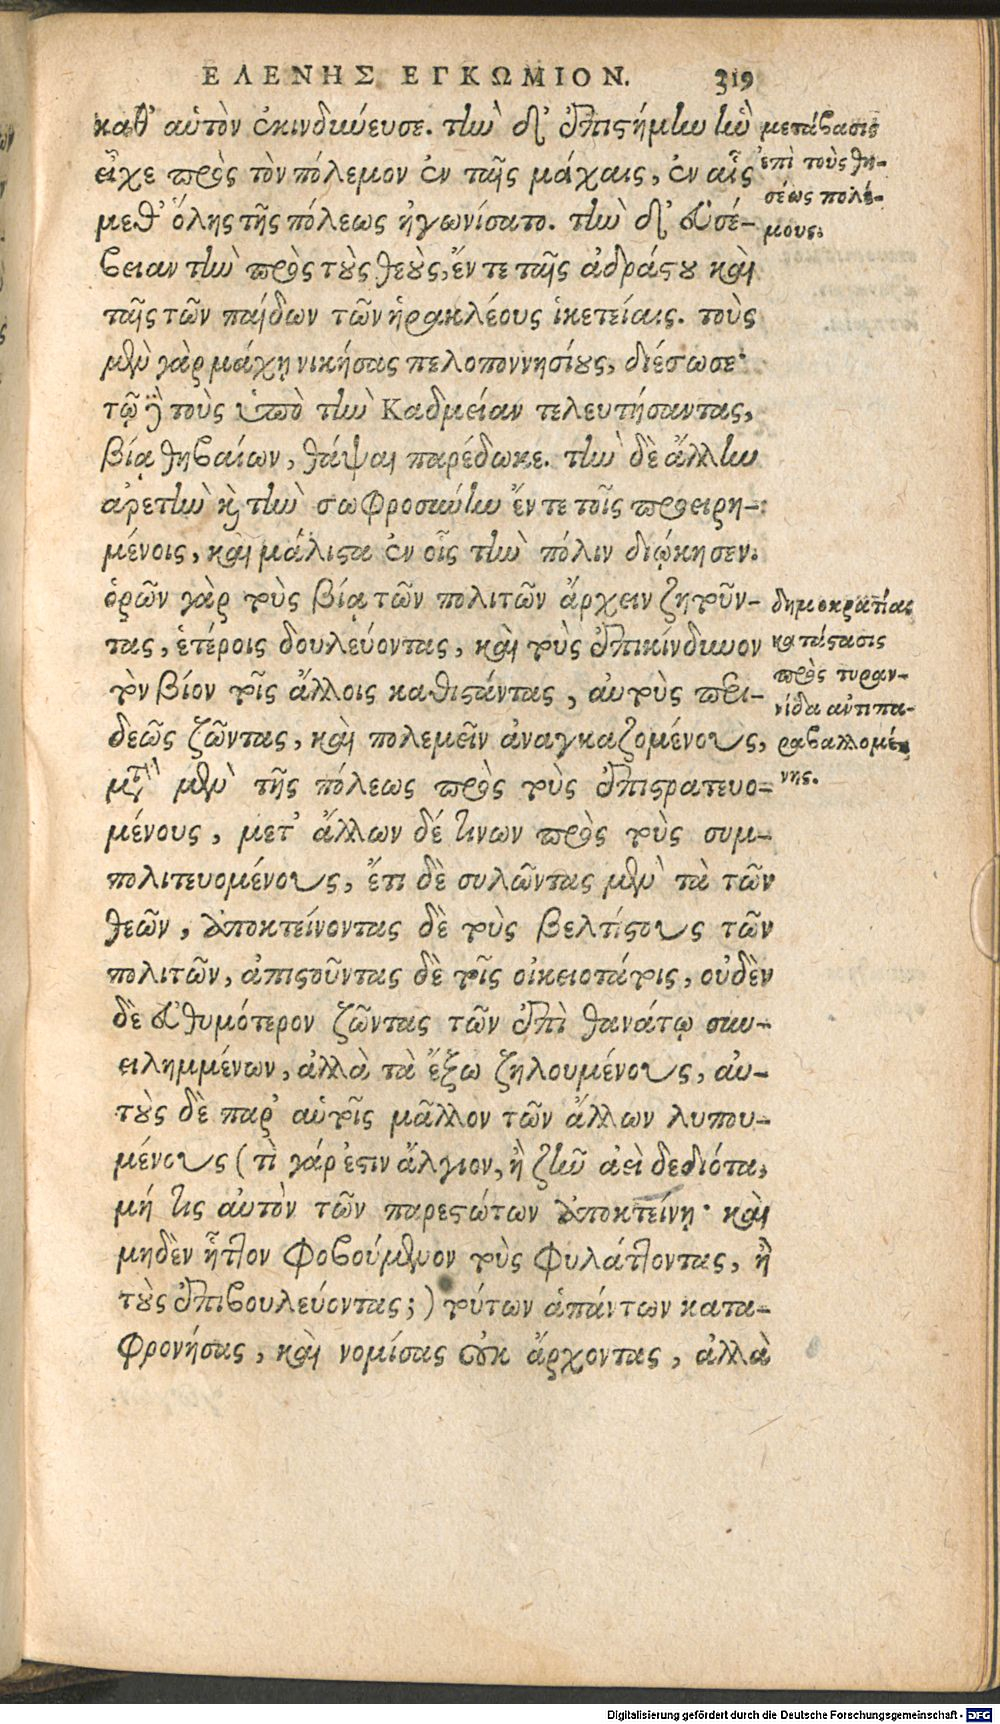 ΕΛΕΝΗΣ ΕΓΚΩΜΙΟΝ. 319
καθ' αὑτὸν ἐκινδύνευσε. τὴν δ' ἐπιστήμην ἣν
εἶχε πρὸς τὸν πόλεμον ἐν ταῖς μάχαις, ἐν αἷς
μεθ' ὅλης τῆς πόλεως ἠγωνίσατο. τὴν δ' εὐσέ-
βειαν τὴν πρὸς τοὺς θεοὺς, ἔν τε ταῖς ἀδράστου καὶ
ταῖς τῶν παίδων τῶν ἡρακλέους ἱκετείαις. τοὺς
μὲν γὰρ μάχῃ νικήσας πελοποννησίους, διέσωσε·
τῷ δὲ τοὺς ὑπὸ τὴν Καδμείαν τελευτήσαντας,
βίᾳ θηβαίων, θάψαι παρέδωκε. τὴν δὲ ἄλλην
ἀρετὴν καὶ τὴν σωφροσύνην ἔν τε τοῖς προειρη-
μένοις, καὶ μάλιστα ἐν οἷς τὴν πόλιν διῴκησεν.
ὁρῶν γὰρ τοὺς βίᾳ τῶν πολιτῶν ἄρχειν ζητοῦν-
τας, ἑτέροις δουλεύοντας, καὶ τοὺς ἐπικίνδυνον
τὸν βίον τοῖς ἄλλοις καθιστάντας, αὐτοὺς περι-
δεῶς ζῶντας, καὶ πολεμεῖν ἀναγκαζομένους,
μετὰ μὲν τῆς πόλεως πρὸς τοὺς ἐπιστρατευο-
μένους, μετ' ἄλλων δέ τινων πρὸς τοὺς συμ-
πολιτευομένους, ἔτι δὲ συλῶντας μὲν τὰ τῶν
θεῶν, ἀποκτείνοντας δὲ τοὺς βελτίστους τῶν
πολιτῶν, ἀπιστοῦντας δὲ τοῖς οἰκειοτάτοις, οὐδὲν
δὲ εὐθυμότερον ζῶντας τῶν ἐπὶ θανάτῳ συν-
ειλημμένων, ἀλλὰ τὰ ἔξω ζηλουμένους, αὐ-
τοὺς δὲ παρ' αὑτοῖς μᾶλλον τῶν ἄλλων λυπου-
μένους (τί γάρ ἐστιν ἄλγιον, ἢ ζῆν ἀεὶ δεδιότα,
μή τις αὐτὸν τῶν παρεστώτων ἀποκτείνῃ· καὶ
μηδὲν ἧττον φοβούμενον τοὺς φυλάττοντας, ἢ
τοὺς ἐπιβουλεύοντας;) τούτων ἁπάντων κατα-
φρονήσας, καὶ νομίσας οὐκ ἄρχοντας, ἀλλὰ
μετάβασις
ἐπὶ τοὺς θη-
σέως πολέ-
μους.
δημοκρατίας
κατάστασις
πρὸς τυραν-
νίδα ἀντιπα-
ραβαλλομέ-
νης.
Digitalisierung gefördert durch die Deutsche Forschungsgemeinschaft - DFG